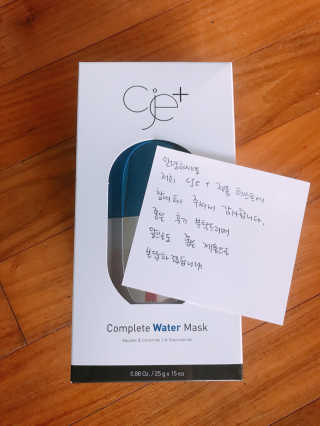 cje+
안녕하세요
저희 cje + 제품 테스트에
참여해 주셔서 감사합니다.
좋은 후기 부탁드리며
앞으로도 좋은 제품으로
보답하겠습니다.
Complete Water Mask
0.88 Oz. / 25 g x 15 ea